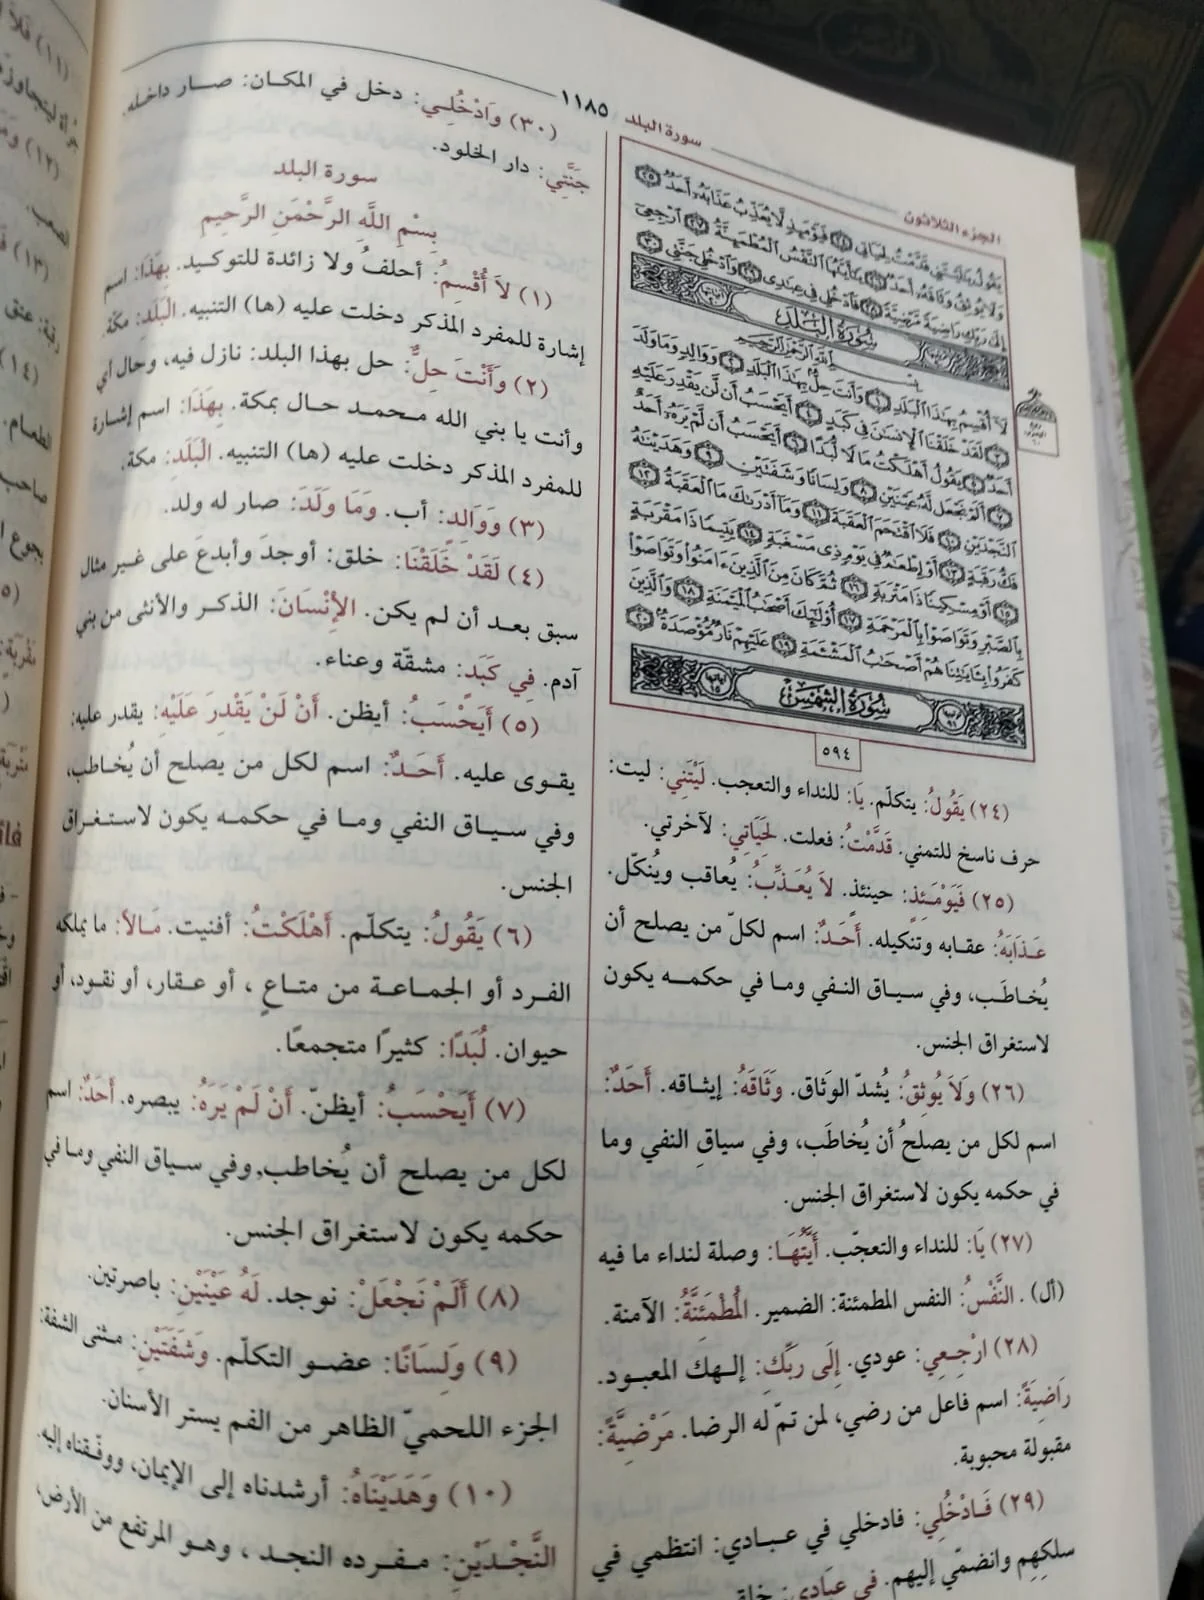 سورة البلد
١١٨٥
الجزء الثلاثون
يَقُولُ يَـٰلَيْتَنِى قَدَّمْتُ لِحَيَاتِى ٢٤ فَيَوْمَئِذٍ لَّا يُعَذِّبُ عَذَابَهُۥٓ أَحَدٌ ٢٥
وَلَا يُوثِقُ وَثَاقَهُۥٓ أَحَدٌ ٢٦ يَـٰٓأَيَّتُهَا ٱلنَّفْسُ ٱلْمُطْمَئِنَّةُ ٢٧ ٱرْجِعِىٓ
إِلَىٰ رَبِّكِ رَاضِيَةً مَّرْضِيَّةً ٢٨ فَٱدْخُلِى فِى عِبَـٰدِى ٢٩ وَٱدْخُلِى جَنَّتِى ٣٠
سُورَةُ البَلَدِ
بِسْمِ ٱللَّهِ ٱلرَّحْمَـٰنِ ٱلرَّحِيمِ
لَآ أُقْسِمُ بِهَـٰذَا ٱلْبَلَدِ ١ وَأَنتَ حِلٌّۢ بِهَـٰذَا ٱلْبَلَدِ ٢ وَوَالِدٍ وَمَا وَلَدَ
٣ لَقَدْ خَلَقْنَا ٱلْإِنسَـٰنَ فِى كَبَدٍ ٤ أَيَحْسَبُ أَن لَّن يَقْدِرَ عَلَيْهِ
أَحَدٌ ٥ يَقُولُ أَهْلَكْتُ مَالًا لُّبَدًا ٦ أَيَحْسَبُ أَن لَّمْ يَرَهُۥٓ أَحَدٌ
٧ أَلَمْ نَجْعَل لَّهُۥ عَيْنَيْنِ ٨ وَلِسَانًا وَشَفَتَيْنِ ٩ وَهَدَيْنَـٰهُ
ٱلنَّجْدَيْنِ ١٠ فَلَا ٱقْتَحَمَ ٱلْعَقَبَةَ ١١ وَمَآ أَدْرَىٰكَ مَا ٱلْعَقَبَةُ ١٢
فَكُّ رَقَبَةٍ ١٣ أَوْ إِطْعَـٰمٌ فِى يَوْمٍ ذِى مَسْغَبَةٍ ١٤ يَتِيمًا ذَا مَقْرَبَةٍ
١٥ أَوْ مِسْكِينًا ذَا مَتْرَبَةٍ ١٦ ثُمَّ كَانَ مِنَ ٱلَّذِينَ ءَامَنُوا۟ وَتَوَاصَوْا۟
بِٱلصَّبْرِ وَتَوَاصَوْا۟ بِٱلْمَرْحَمَةِ ١٧ أُو۟لَـٰٓئِكَ أَصْحَـٰبُ ٱلْمَيْمَنَةِ ١٨ وَٱلَّذِينَ
كَفَرُوا۟ بِـَٔايَـٰتِنَا هُمْ أَصْحَـٰبُ ٱلْمَشْـَٔمَةِ ١٩ عَلَيْهِمْ نَارٌ مُّؤْصَدَةٌۢ ٢٠
سُورَةُ الشَّمْسِ
٥٩٤
(٢٤) يَقُولُ: يتكلّم. يَا: للنداء والتعجب. لَيْتَنِي: ليت:
حرف ناسخ للتمني. قَدَّمْتُ: فعلت. لِحَيَاتِي: لآخرتي.
(٢٥) فَيَوْمَئِذٍ: حينئذ. لاَ يُعَذِّبُ: يُعاقب ويُنكّل.
عَذَابَهُ: عقابه وتنكيله. أَحَدٌ: اسم لكلّ من يصلح أن
يُخاطَب، وفي سياق النفي وما في حكمه يكون
لاستغراق الجنس.
(٢٦) وَلاَ يُوثِقُ: يُشدّ الوَثاق. وَثَاقَهُ: إيثاقه. أَحَدٌ:
اسم لكل من يصلحُ أن يُخاطَب، وفي سياقِ النفي وما
في حكمه يكون لاستغراق الجنس.
(٢٧) يَا: للنداء والتعجّب. أَيَّتُهَا: وصلة لنداء ما فيه
(أل). النَّفْسُ: النفس المطمئنة: الضمير. الْمُطْمَئِنَّةُ: الآمنة.
(٢٨) ارْجِعِي: عودي. إِلَى رَبِّكِ: إلهك المعبود.
رَاضِيَةً: اسم فاعل من رضي، لمن تمّ له الرضا. مَرْضِيَّةً:
مقبولة محبوبة.
(٢٩) فَادْخُلِي: فادخلي في عبادي: انتظمي في
سلكِهِم وانضمّي إليهم. في عِبَادِي: خلق
(٣٠) وَادْخُلِي: دخل في المكان: صار داخله.
جَنَّتِي: دار الخلود.
سورة البلد
بِسْمِ اللَّهِ الرَّحْمَنِ الرَّحِيمِ
(١) لاَ أُقْسِمُ: أحلفُ ولا زائدة للتوكيد. بِهَذَا: اسم
إشارة للمفرد المذكر دخلت عليه (ها) التنبيه. الْبَلَدِ: مكة.
(٢) وأَنْتَ حِلٌّ: حل بهذا البلد: نازل فيه، وحال أي
وأنت يا بني الله محمد حال بمكة. بِهَذَا: اسم إشارة
للمفرد المذكر دخلت عليه (ها) التنبيه. الْبَلَدِ: مكة.
(٣) وَوَالِدٍ: أب. وَمَا وَلَدَ: صار له ولد.
(٤) لَقَدْ خَلَقْنَا: خلق: أوجدَ وأبدعَ على غير مثال
سبق بعد أن لم يكن. الإِنْسَانَ: الذكر والأنثى من بني
آدم. فِي كَبَدٍ: مشقّة وعناء.
(٥) أَيَحْسَبُ: أيظن. أَنْ لَنْ يَقْدِرَ عَلَيْهِ: يقدر عليه:
يقوى عليه. أَحَدٌ: اسم لكل من يصلح أن يُخاطب،
وفي سياق النفي وما في حكمه يكون لاستغراق
الجنس.
(٦) يَقُولُ: يتكلّم. أَهْلَكْتُ: أفنيت. مَالاً: ما يملكه
الفرد أو الجماعة من متاعٍ، أو عقار، أو نقود، أو
حيوان. لُبَدًا: كثيرًا متجمعًا.
(٧) أَيَحْسَبُ: أيظنّ. أَنْ لَمْ يَرَهُ: يبصره. أَحَدٌ: اسم
لكل من يصلح أن يُخاطب, وفي سياق النفي وما في
حكمه يكون لاستغراق الجنس.
(٨) أَلَمْ نَجْعَلْ: نوجد. لَهُ عَيْنَيْنِ: باصرتين.
(٩) وَلِسَانًا: عضو التكلّم. وَشَفَتَيْنِ: مثنى الشفة:
الجزء اللحميّ الظاهر من الفم يستر الأسنان.
(١٠) وَهَدَيْنَاهُ: أرشدناه إلى الإيمان، ووفّقناه إليه.
النَّجْدَيْنِ: مفرده النجد، وهو المرتفع من الأرض،